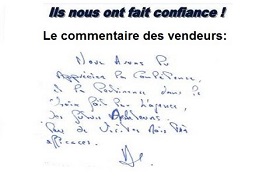 Ils nous ont fait confiance !
Le commentaire des vendeurs:
Nous Avons Pu
Apprécier la Compétence,
et la Pertinence dans le
fait par l'agence,
les futurs Acheteurs.
Peu de Visites Mais très
efficaces.